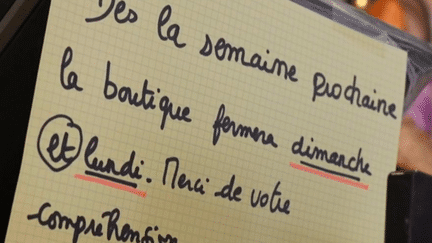 Dès la semaine prochaine
la boutique fermera dimanche
et lundi. Merci de votre
compréhension